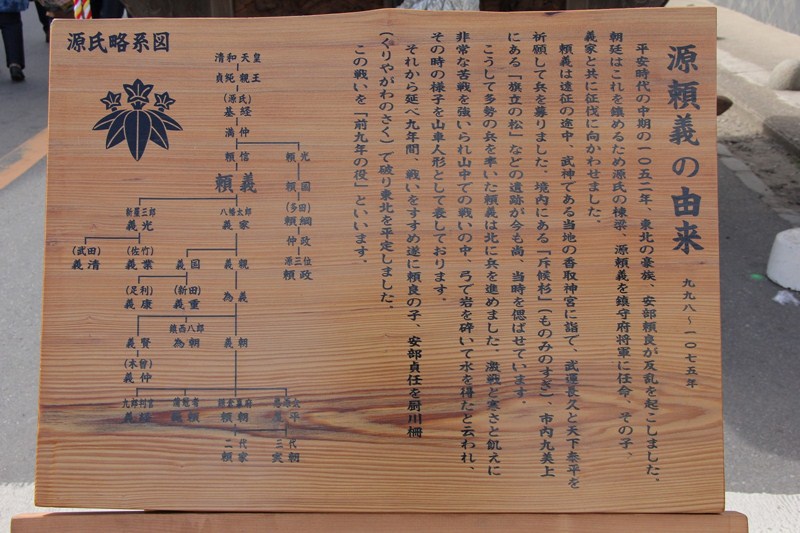 源頼義の由来
九九八〜一〇七五年
平安時代の中期の一〇五二年、東北の豪族、安部頼良が反乱を起こしました。
朝廷はこれを鎮めるため源氏の棟梁、源頼義を鎮守府将軍に任命、その子、
義家と共に征伐に向かわせました。
頼義は遠征の途中、武神である当地の香取神宮に詣で、武運長久と天下泰平を
祈願して兵を募りました。境内にある「斥候杉」(ものみのすぎ)、市内九美上
にある「旗立の松」などの遺跡が今も尚、当時を偲ばせています。
こうして多勢の兵を率いた頼義は北に兵を進めました。激戦と寒さと飢えに
非常な苦戦を強いられ山中での戦いの中、弓で岩を砕いて水を得たと云われ、
その時の様子を山車人形として表しております。
それから延べ九年間、戦いをすすめ遂に頼良の子、安部貞任を厨川柵
(くりやがわのさく)で破り東北を平定しました。
この戦いを「前九年の役」といいます。
源氏略系図
清和天皇
貞純親王
(源氏)
基経
満仲
頼信
頼光
頼義
頼国
(多田)
頼綱
仲政
源三位
頼政
新羅三郎
義光
八幡太郎
義家
(武田)
義清
(佐竹)
義業
義国
義親
(足利)
義康
(新田)
義重
為義
義賢
鎮西八郎
為朝
義朝
(木曽)
義仲
九郎判官
義経
蒲冠者
範頼
鎌倉幕府
頼朝
悪源太
義平
二代
頼家
三代
実朝